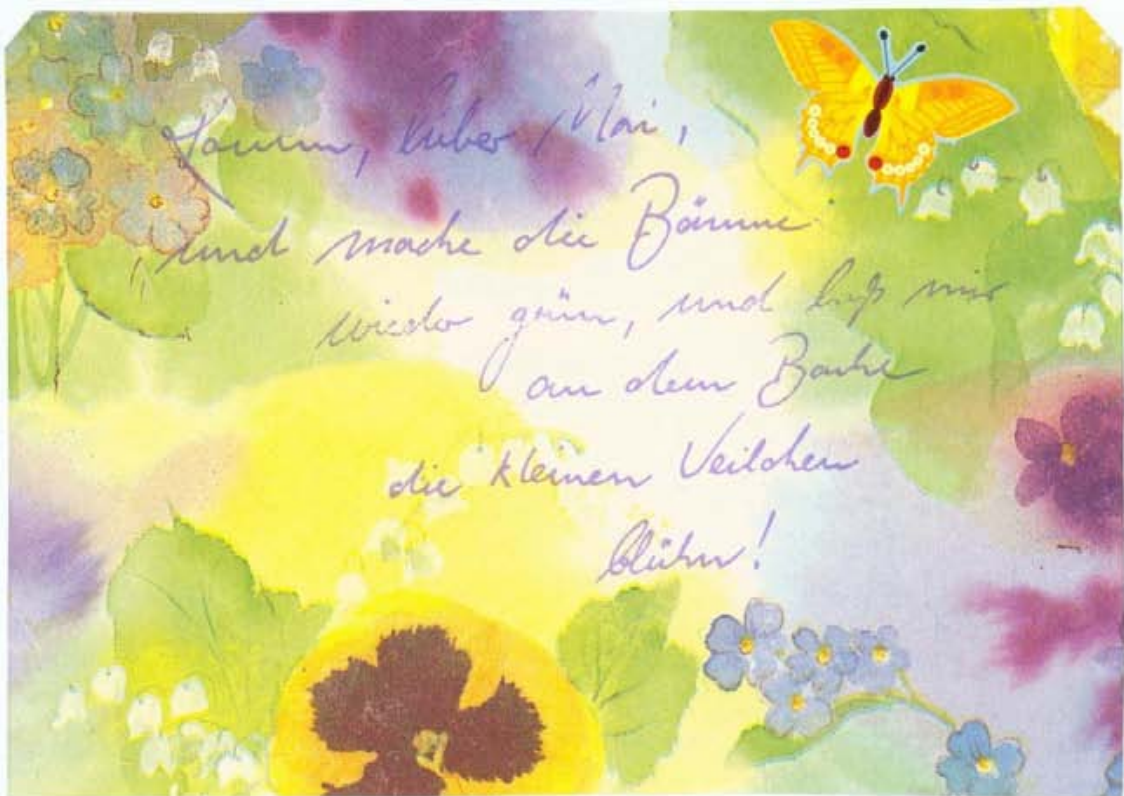 Komm, lieber Mai,
und mache die Bäume
wieder grün, und laß mir
an dem Bache
die kleinen Veilchen
blühn!